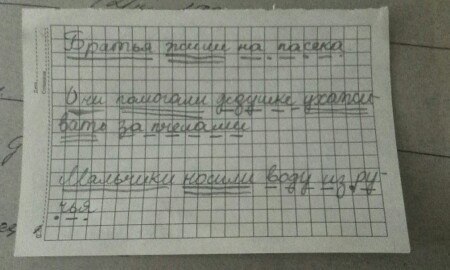 Братья жили на пасека
Они помогали дедушке ухажи-
вать за пчелами
Мальчики носили воду из ру-
чья